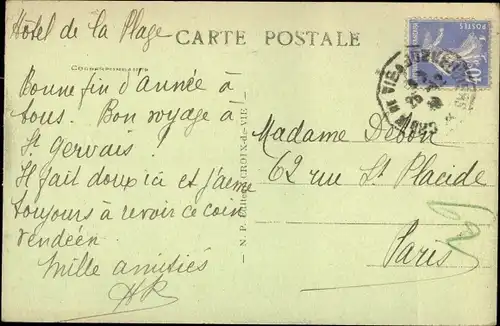 Hôtel de la Plage
CARTE POSTALE
CORRESPONDANCE
Bonne fin d'année à
tous. Bon voyage à
St Gervais!
Il fait doux ici et j'aime
toujours à revoir ce coin
vendéen
Mille amitiés
HR
N. P. CROIX-de-VIE
Madame Debon
62 rue St Placide
Paris
CROIX DE VIE